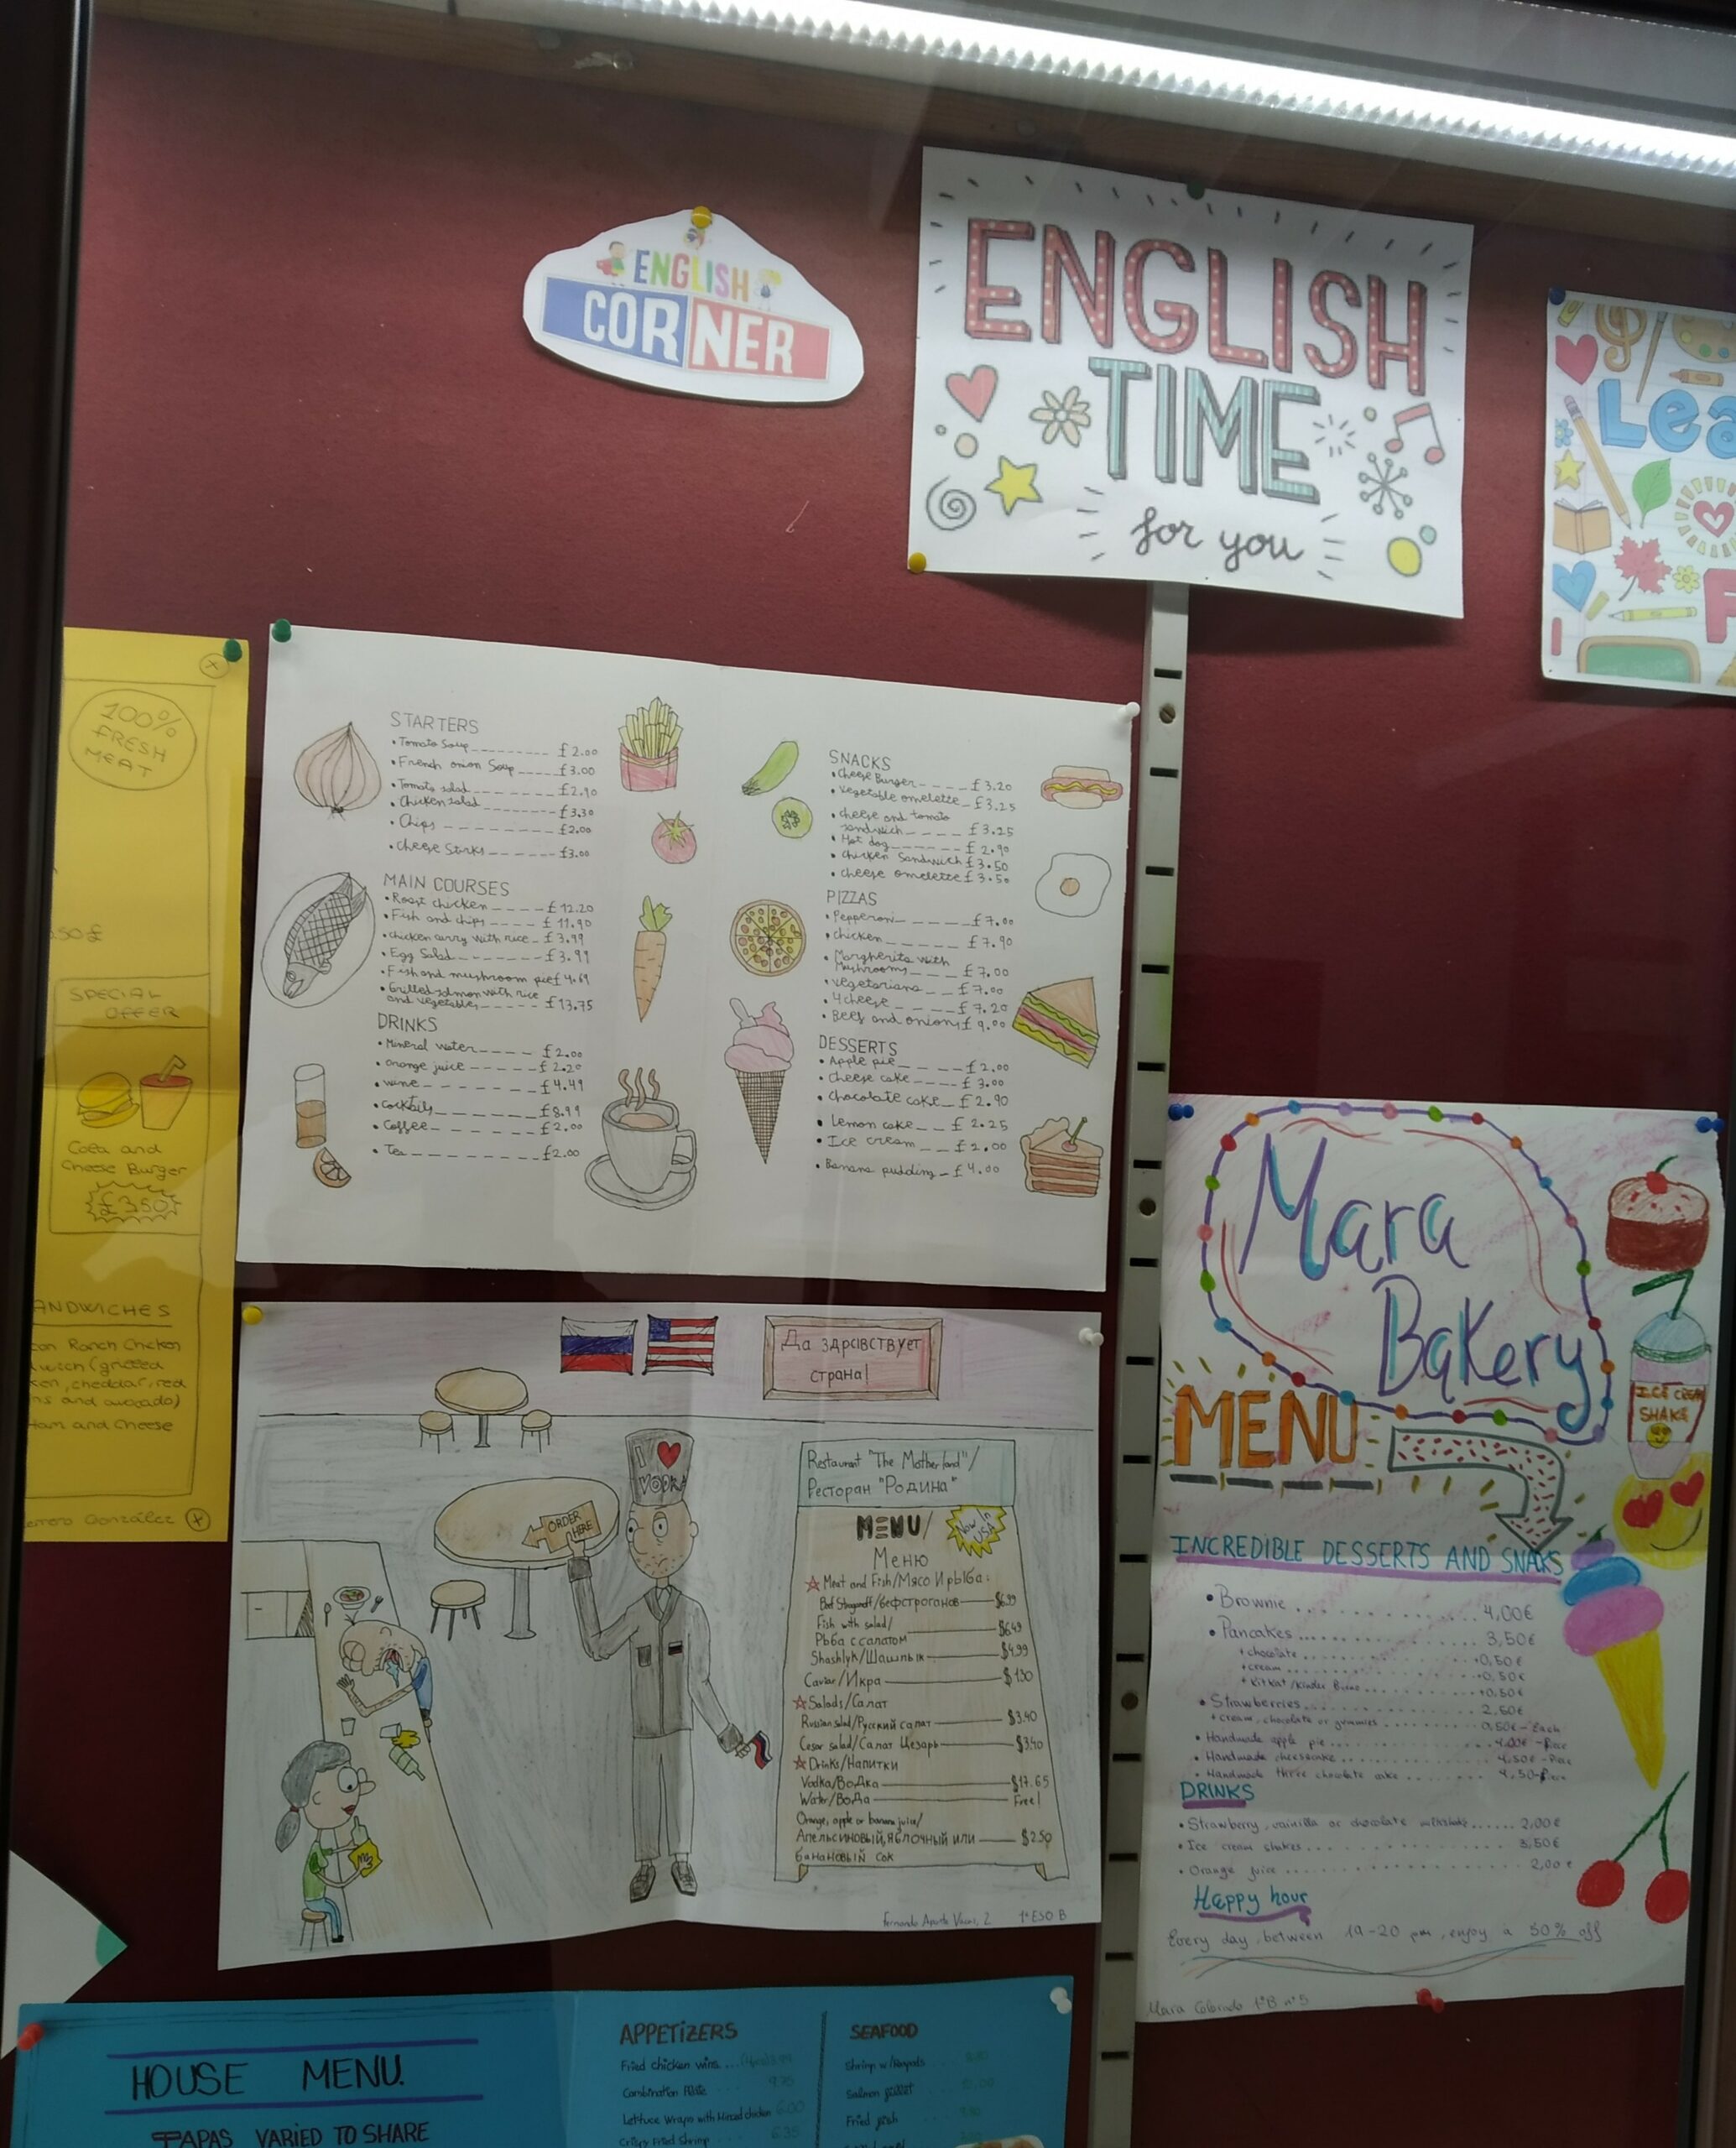 ENGLISH
CORNER
ENGLISH
TIME
for you
Lea
F
100%
FRESH
MEAT
.50£
SPECIAL
OFFER
Coca and
Cheese Burger
£3.50
ANDWICHES
Ranch Chicken
cheddar, red
and avocado)
Ham and Cheese
González
STARTERS
• Tomato Soup £2.00
• French onion Soup £3.00
• Tomato salad £2.90
• Chicken salad £3.30
• Chips £2.00
• Cheese Sticks £3.00
MAIN COURSES
• Roast chicken £12.20
• Fish and chips £11.90
• chicken curry with rice £3.99
• Egg Salad £3.99
• Fish and mushroom pie £4.69
• Grilled salmon with rice
and vegetables £13.75
DRINKS
• Mineral water £2.00
• orange juice £2.20
• wine £4.49
• cocktails £8.99
• Coffee £2.00
• Tea £2.00
SNACKS
• Cheese Burger £3.20
• Vegetable omelette £3.25
• cheese and tomato
sandwich £3.25
• Hot dog £2.90
• chicken Sandwich £3.50
• cheese omelette £3.50
PIZZAS
• Pepperoni £7.00
• chicken £7.90
• Margherita with
Mushrooms £7.00
• vegetariana £7.00
• 4 cheese £7.20
• Beef and onion £9.00
DESSERTS
• Apple pie £2.00
• Cheese cake £3.00
• chocolate cake £2.90
• Lemon cake £2.25
• Ice cream £2.00
• Banana pudding £4.00
Да здравствует
страна!
I ♥
VODKA
ORDER
HERE
Restaurant "The Motherland"/
Ресторан "Родина"
MENU/
Now in
USA
Меню
☆ Meat and Fish/Мясо И рыба:
Beef Stroganoff/бефстроганов $6.99
Fish with salad/
Рыба с салатом $6.49
Shashlyk/Шашлык $4.99
Caviar/Икра $1.30
☆ Salads/Салат
Russian salad/Русский салат $3.40
Cesar salad/Салат Цезарь $3.40
☆ Drinks/Напитки
Vodka/Водка $17.65
Water/Вода Free!
Orange, apple or banana juice/
Апельсиновый, яблочный или $2.50
банановый сок
Fernando 1º ESO B
Mara
Bakery
MENU
ICE CREAM
SHAKE
INCREDIBLE DESSERTS AND SNAKS
• Brownie 4,00€
• Pancakes 3,50€
+ chocolate +0,50€
+ cream +0,50€
+ KitKat/Kinder Bueno +0,50€
• Strawberries 2,50€
+ cream, chocolate or gummies 0,50€-Each
• Handmade apple pie 4,00€-Piece
• Handmade cheesecake 4,50€-Piece
• Handmade three chocolate cake 4,50-Piece
DRINKS
• Strawberry, vainilla or chocolate milkshake 2,00€
• Ice cream shakes 3,50€
• Orange juice 2,00€
Happy hour
Every day, between 19-20 pm, enjoy a 50% off
Mara Colorado 1ºB nº5
HOUSE MENU.
TAPAS VARIED TO SHARE
APPETIZERS
Fried chicken wins
Combination Plate 9.75
Lettuce Wraps with Minced chicken 6.00
Crispy Fried Shrimp 6.35
SEAFOOD
Shrimp w/
Salmon
Fried fish